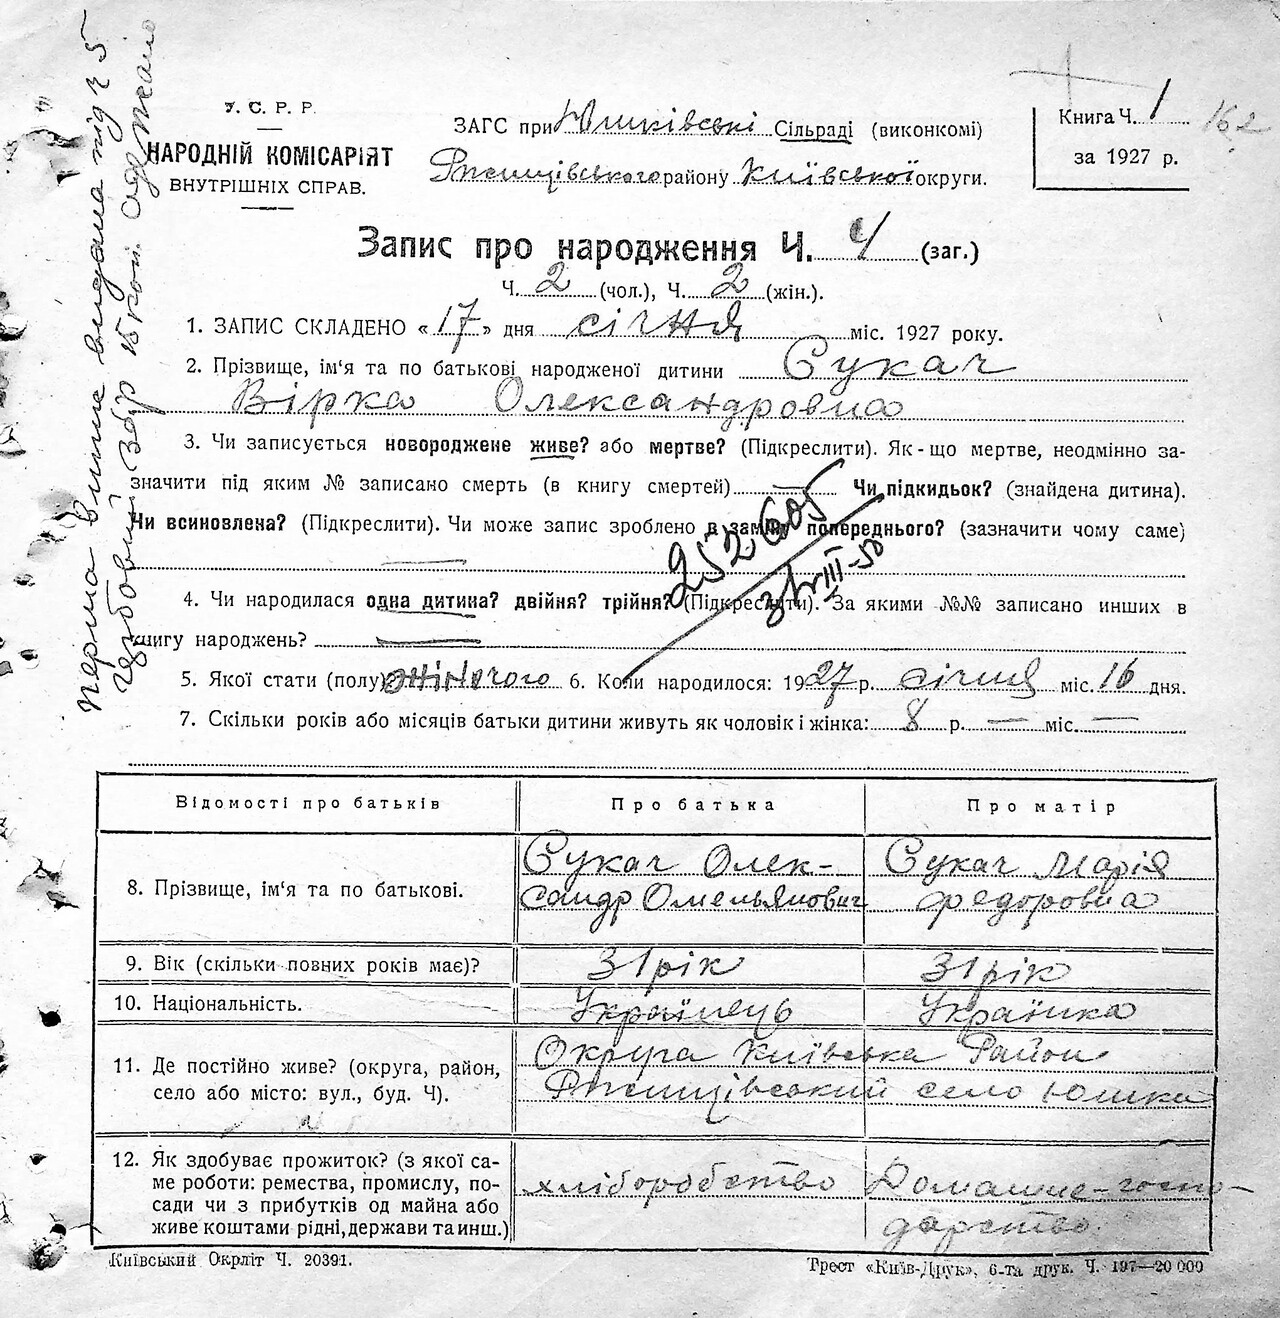 У. С. Р. Р.
НАРОДНІЙ КОМІСАРІЯТ
ВНУТРІШНІХ СПРАВ.
ЗАГС при Юшківські Сільраді (виконкомі)
Ржищівського району Київської округи.
Книга Ч. 1
за 1927 р.
162
Запис про народження Ч. 4 (заг.)
Ч. 2 (чол.), Ч. 2 (жін.).
1. ЗАПИС СКЛАДЕНО «17» дня січня міс. 1927 року.
2. Прізвище, ім'я та по батькові народженої дитини Сукач
Вірка Олександровна
3. Чи записується новороджене живе? або мертве? (Підкреслити). Як-що мертве, неодмінно за-
значити під яким № записано смерть (в книгу смертей) — Чи підкидьок? (знайдена дитина).
Чи всиновлена? (Підкреслити). Чи може запис зроблено в заміну попереднього? (зазначити чому саме)
—
252605
III-50
4. Чи народилася одна дитина? двійня? трійня? (Підкреслити). За якими №№ записано инших в
книгу народжень? —
5. Якої статі (полу) жіночого 6. Коли народилося: 1927 р. січня міс. 16 дня.
7. Скільки років або місяців батьки дитини живуть як чоловік і жінка: 8 р. — міс. —
Відомості про батьків Про батька Про матір
8. Прізвище, ім'я та по батькові. Сукач Олек-
сандр Омельянович Сукач Марія
Федоровна
9. Вік (скільки повних років має)? 31 рік 31 рік
10. Національність. Українець Українка
11. Де постійно живе? (округа, район,
село або місто: вул., буд. Ч). Округа Київська Район
Ржищівський село Юшки
12. Як здобуває прожиток? (з якої са-
ме роботи: ремества, промислу, по-
сади чи з прибутків од майна або
живе коштами рідні, держави та инш.) хліборобство Домашнє-госпо-
дарство.
Київський Окрліт Ч. 20391.
Трест «Київ-Друк», 6-та друк. Ч. 197—20 000